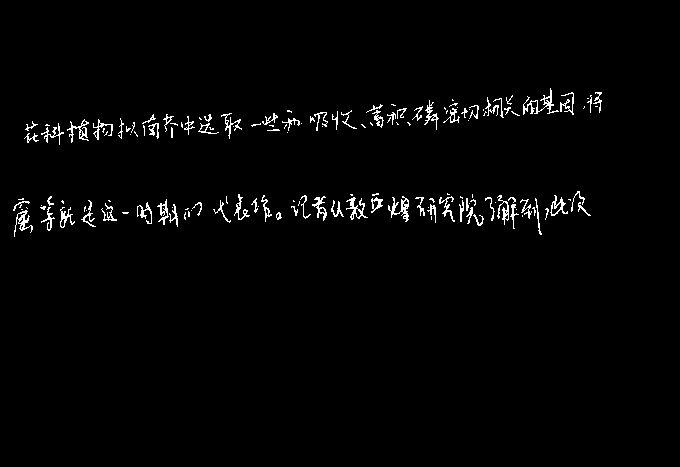 花科植物拟南芥中选取一些和吸收、蓄积磷密切相关的基因,将
窟等就是这一时期的代表作。记者从敦煌研究院了解到,此次